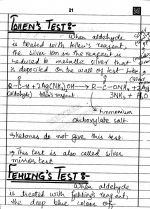 21
TOLLEN'S TEST:-
When aldehyde
is treated with tollen's reagent,
the silver ion in the reagent is
reduced to metallic silver that
is deposited on the wall of test tube
R-C-H + 2Ag(NH3)2OH → R-C-ONH4 + 2Ag
(aldehyde) tollen's reagent 3NH3 + H2O
Ammonium
carboxylate salt
→ Ketones do not give this test
→ This test is also called silver
mirror test
FEHLING'S TEST:-
When aldehyde
is treated with fehling's reagent,
the deep blue colour of